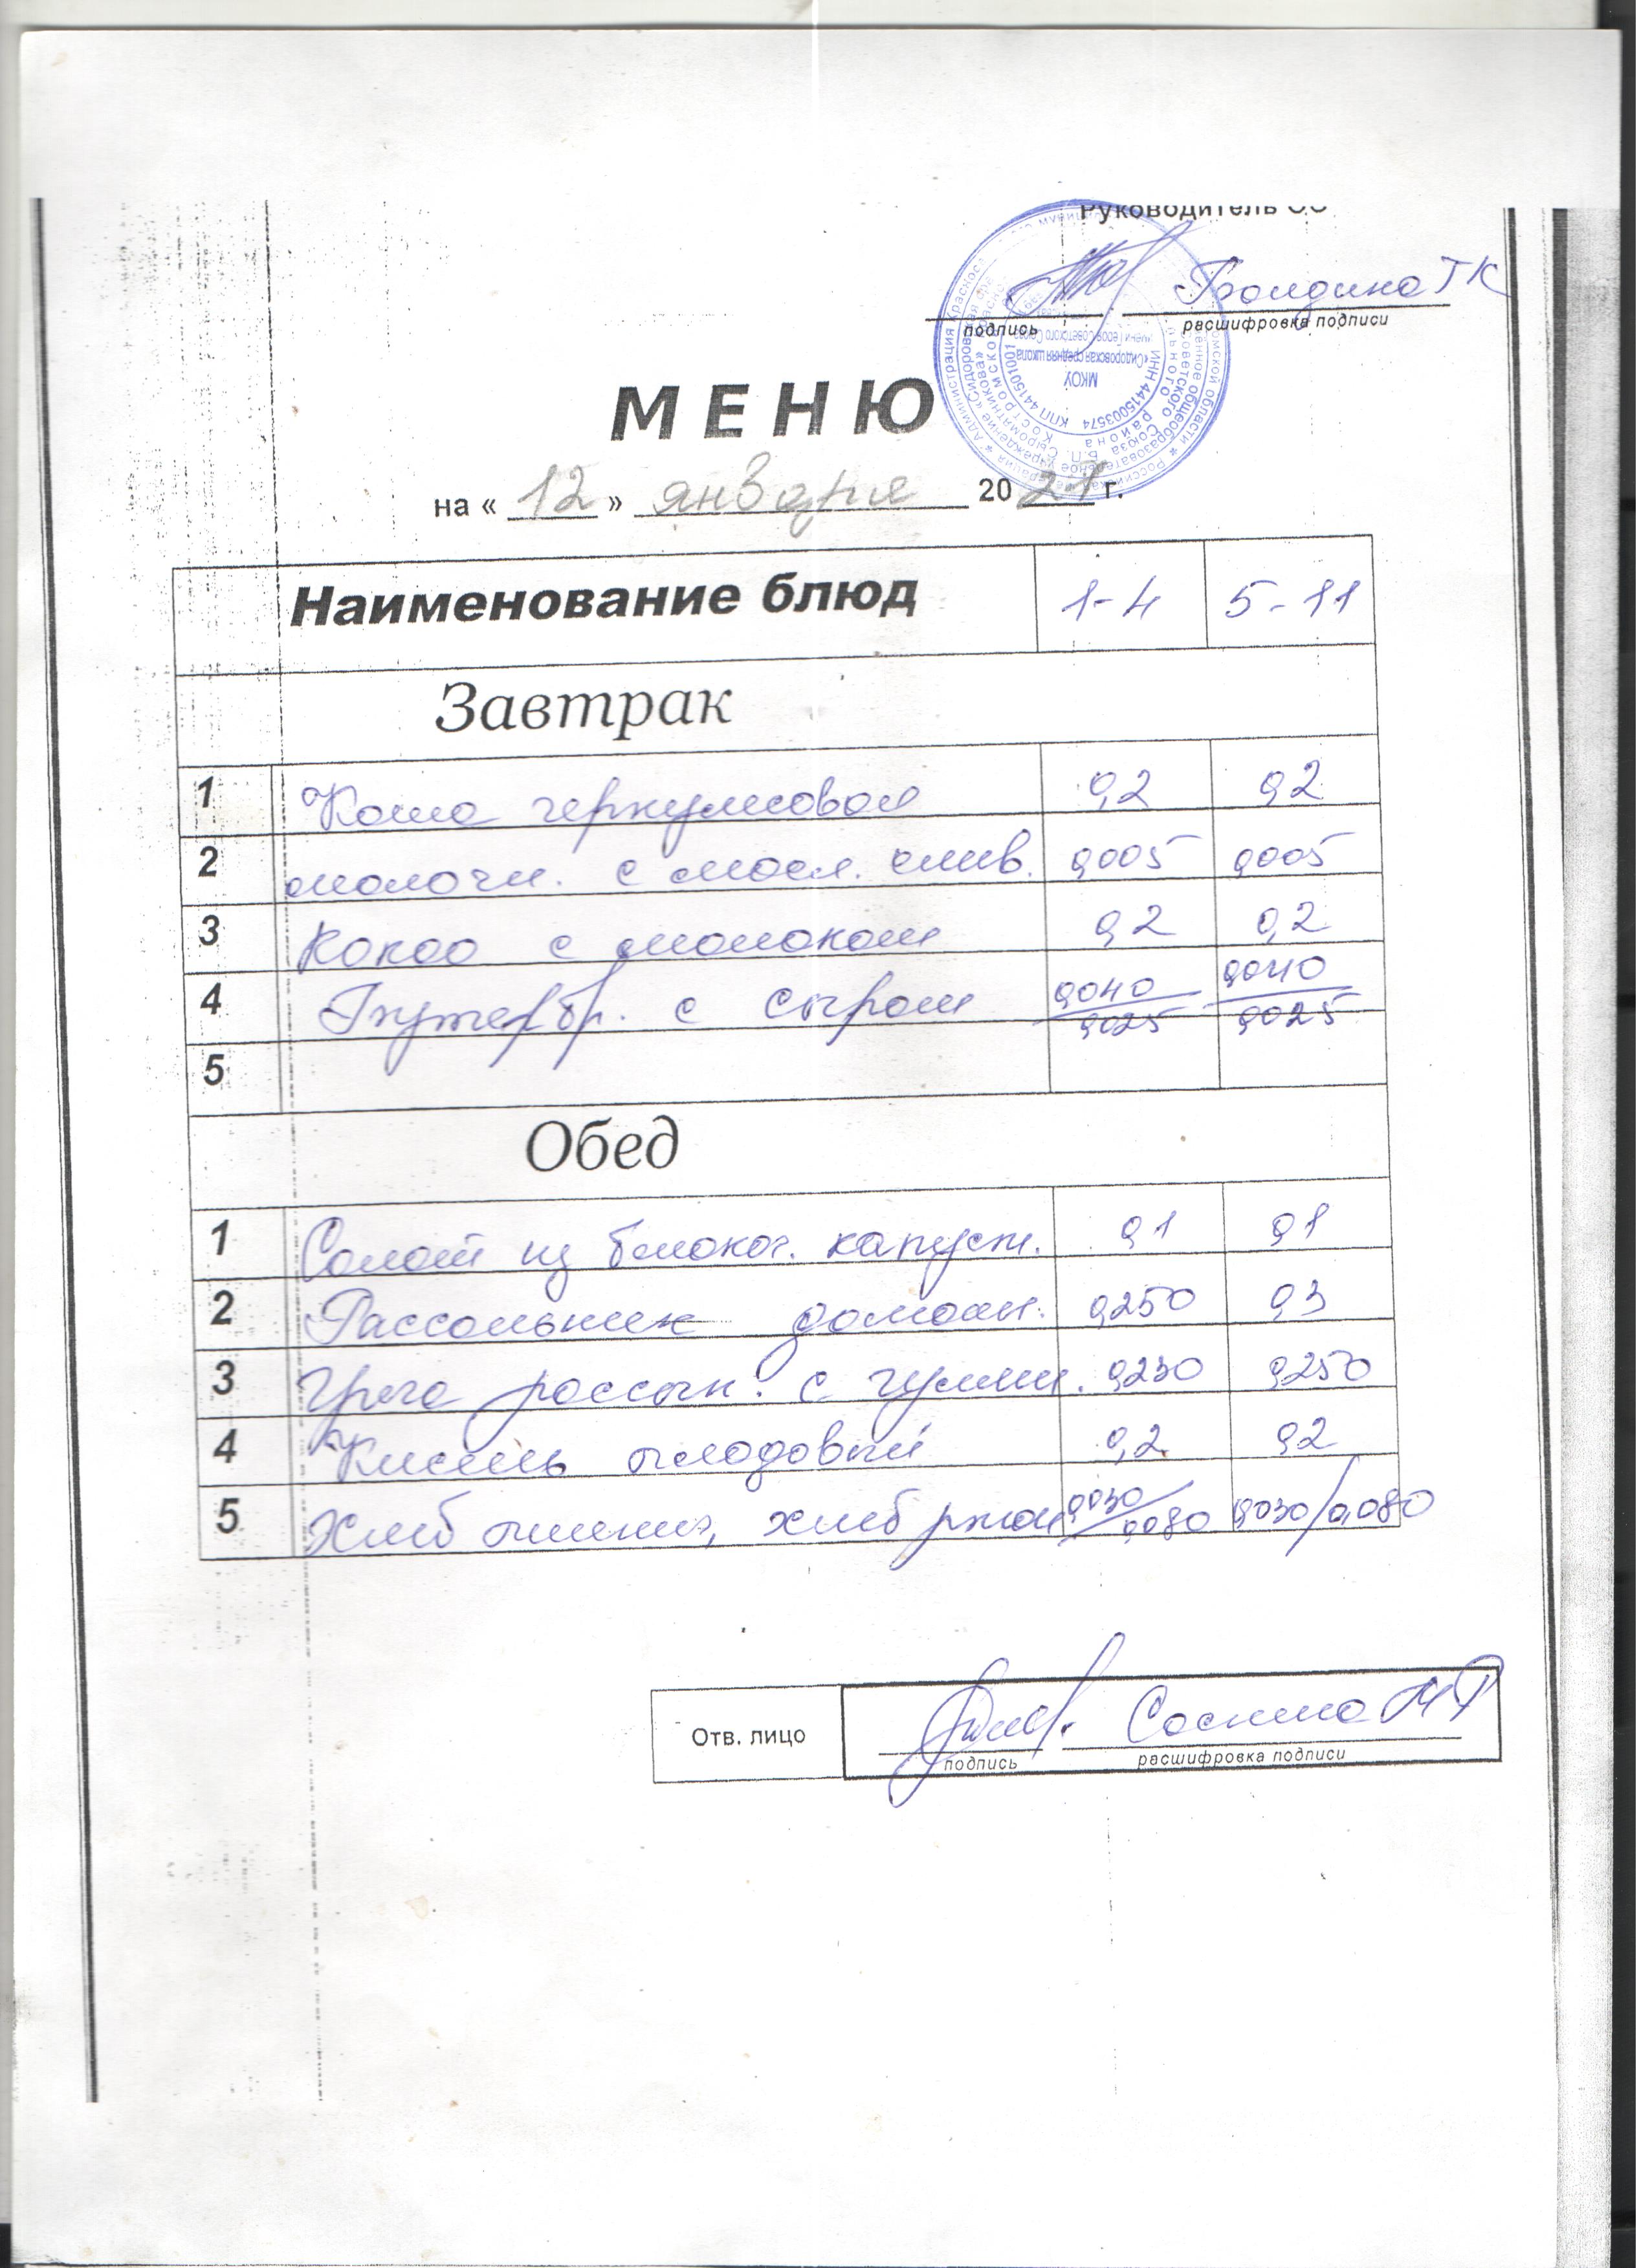 Руководитель ОО
подпись расшифровка подписи
МЕНЮ
на « 12 » января 2021 г.
Наименование блюд 1-4 5-11
Завтрак
1 Каша геркулесовая 0,2 0,2
2 молочн. с масл. слив. 0,005 0,005
3 Какао с молоком 0,2 0,2
4 Бутербр. с сыром 0,040/0,025 0,040/0,025
5
Обед
1 Салат из белокоч. капуст. 0,1 0,1
2 Рассольник домашн. 0,250 0,3
3 Греча рассып. с гуляш. 0,230 0,250
4 Кисель плодовый 0,2 0,2
5 Хлеб пшенич, хлеб ржан 0,030/0,080 0,030/0,080
Отв. лицо
Соснина
подпись расшифровка подписи
МКОУ
«Сидоровская средняя школа
имени Героя Советского Союза
ИНН 4415003574 КПП 441501001